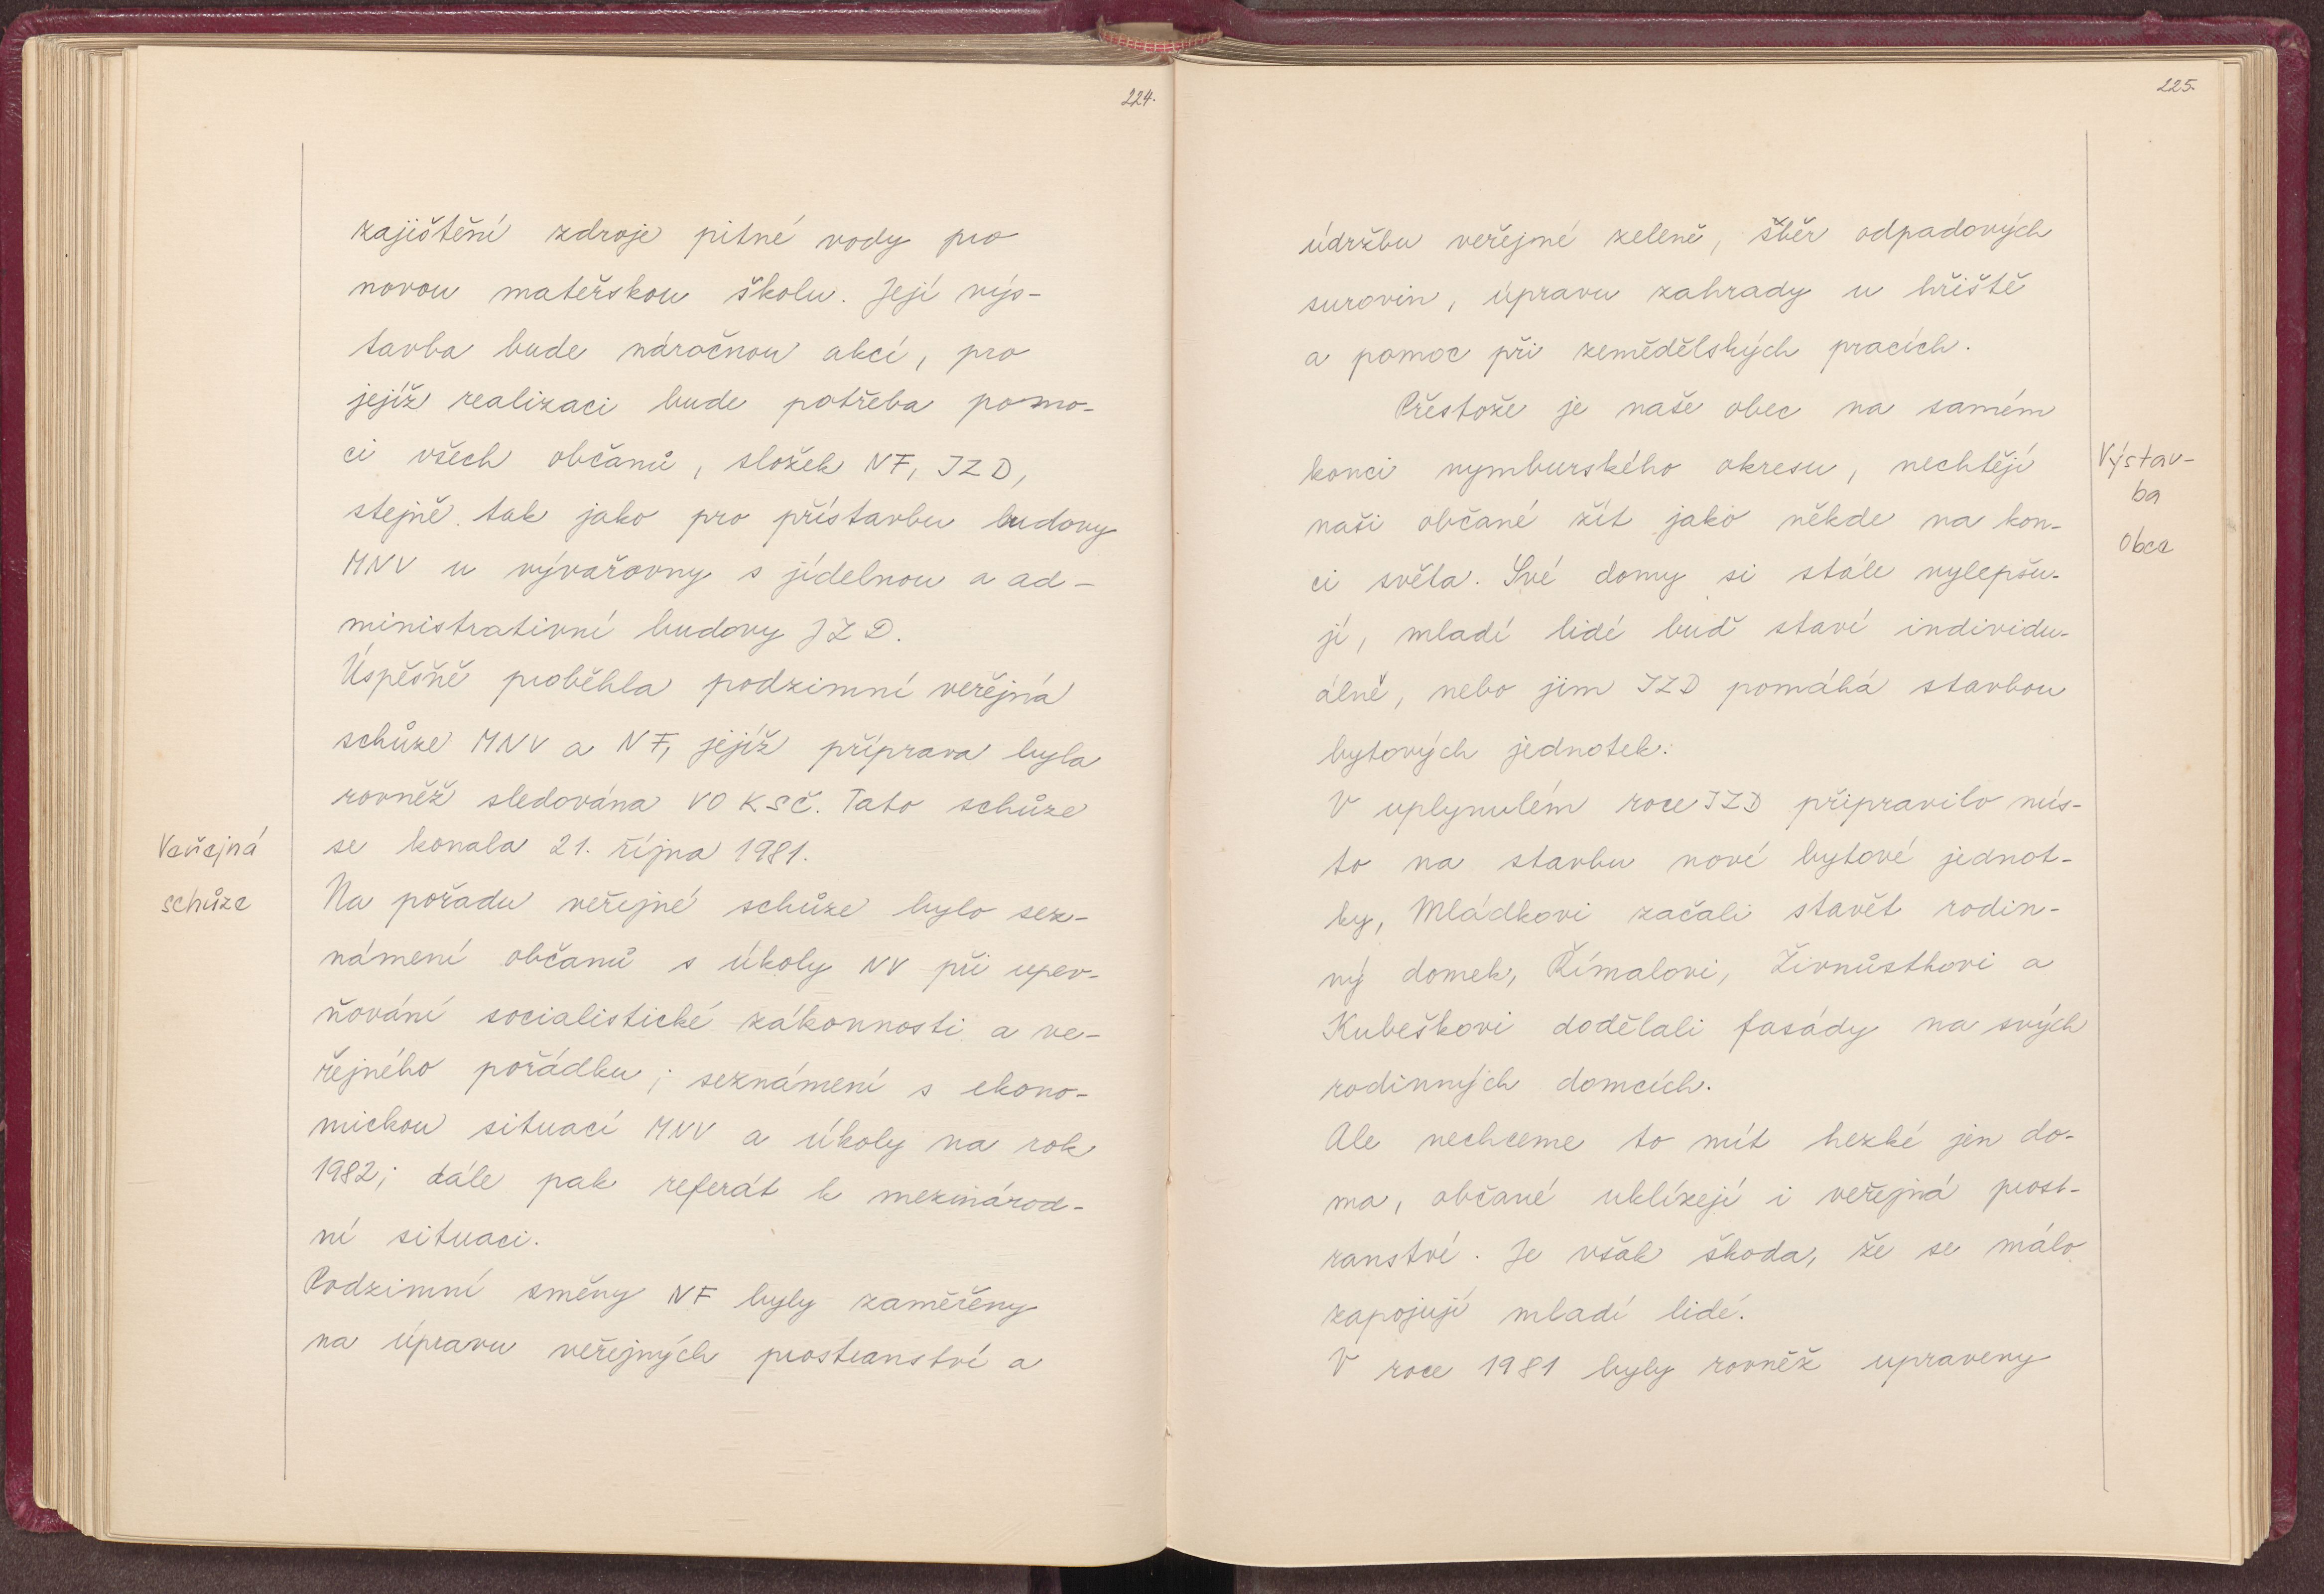 224.
zajištění zdroje pitné vody pro
novou mateřskou školu. Její výs-
tavba bude náročnou akcí, pro
jejíž realizaci bude potřeba pomo-
ci všech občanů, složek NF, JZD,
stejně tak jako pro přístavbu budovy
MNV u vývařovny s jídelnou a ad-
ministrativní budovy JZD.
Úspěšně proběhla podzimní veřejná
schůze MNV a NF, jejíž příprava byla
rovněž sledována VO KSČ. Tato schůze
Veřejná
se konala 21. října 1981.
schůze
Na pořadu veřejné schůze bylo sez-
námení občanů s úkoly NV při upev-
ňování socialistické zákonnosti a ve-
řejného pořádku; seznámení s ekono-
mickou situací MNV a úkoly na rok
1982; dále pak referát k mezinárod-
ní situaci.
Podzimní směny NF byly zaměřeny
na úpravu veřejných prostranství a
225.
údržbu veřejné zeleně, sběr odpadových
surovin, úpravu zahrady u hřiště
a pomoc při zemědělských pracích.
Přestože je naše obec na samém
konci nymburského okresu, nechtějí
Výstav-
ba
naši občané žít jako někde na kon-
obce
ci světa. Své domy si stále vylepšu-
jí, mladí lidé buď staví individu-
álně, nebo jim JZD pomáhá stavbou
bytových jednotek.
V uplynulém roce JZD připravilo mís-
to na stavbu nové bytové jednot-
ky, Mládkovi začali stavět rodin-
ný domek, Římalovi, Živnůstkovi a
Kubeškovi dodělali fasády na svých
rodinných domcích.
Ale nechceme to mít hezké jen do-
ma, občané uklízejí i veřejná prost-
ranství. Je však škoda, že se málo
zapojují mladí lidé.
V roce 1981 byly rovněž upraveny